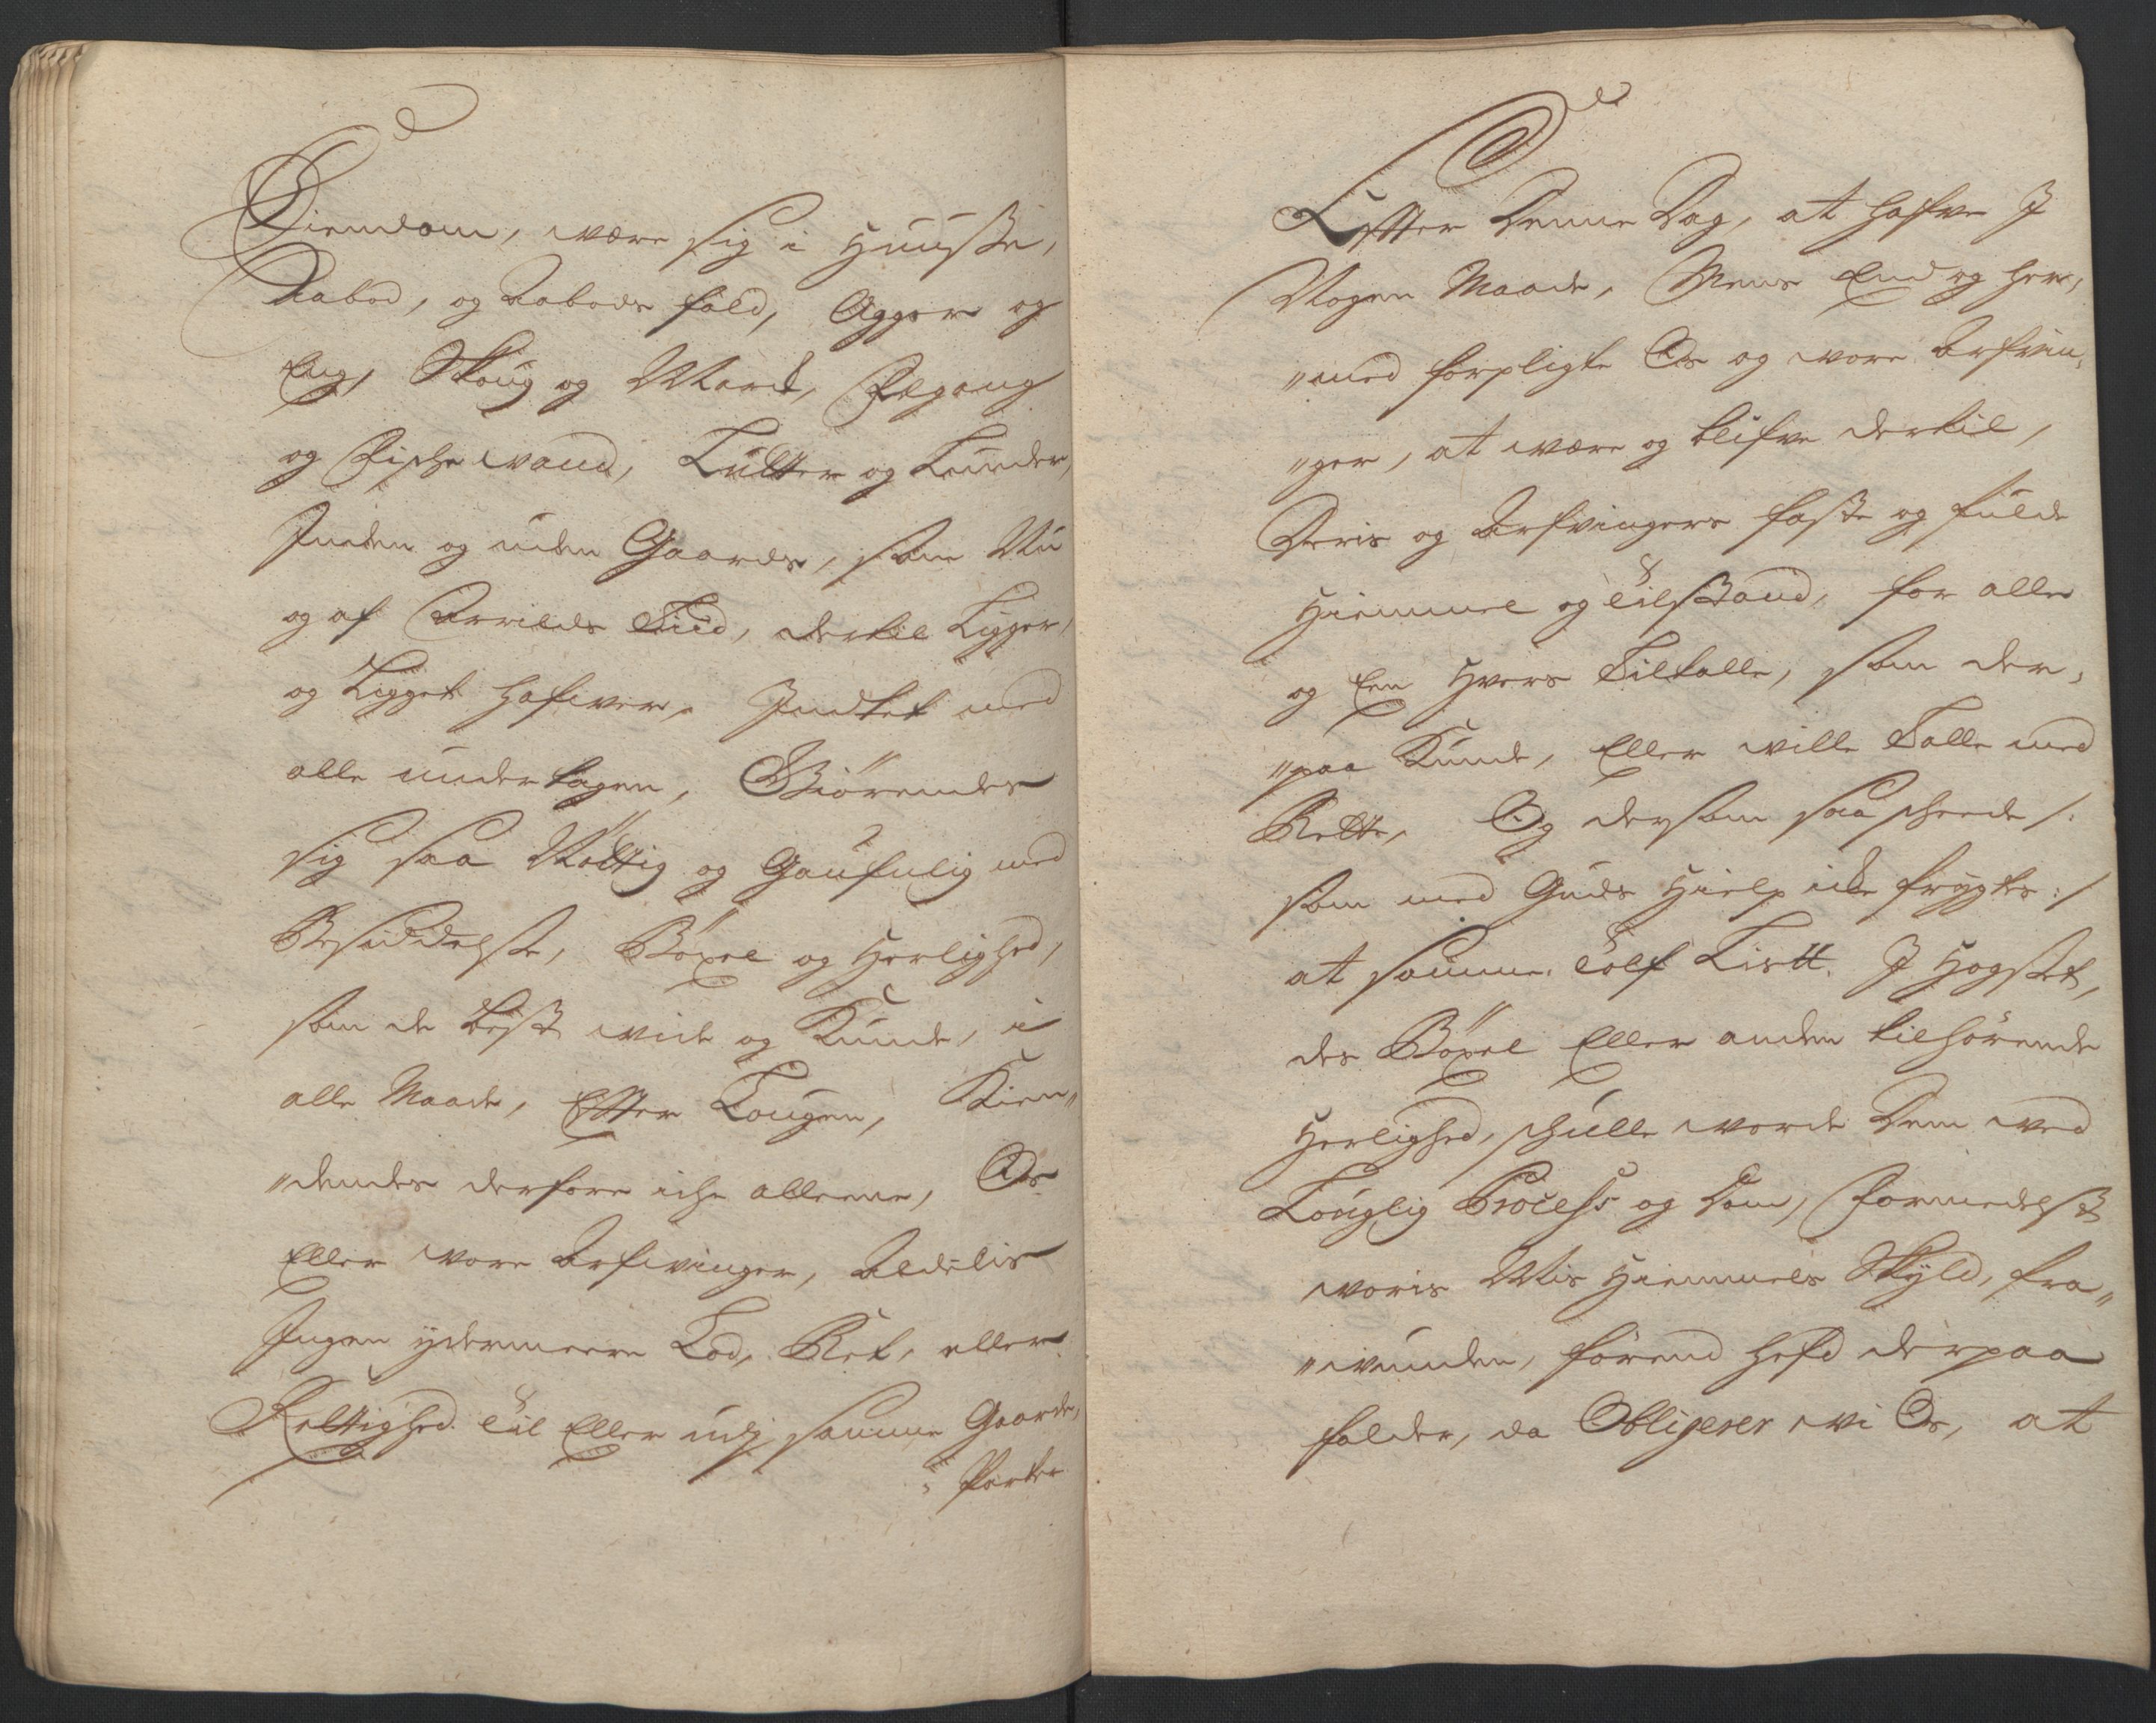 Eiendom, være sig i Huuße,
Aabod, og Aabods fald, Agger og
Eng, Skoug og Marck, Fægang
og Fische wand, Lutter og Lunder,
Inden og uden Gaards, som Nu
og af Arrilds Tiid, dertil Ligger,
og Ligget hafwer, Indtet med
alle undertagen, Giörendes
sig saa Nöttig og Gaufnlig med
Besiddelße, Böxel og Herlighed,
som de best wide og Kunde, i
alle Maade, Efter Lougen, Kien„
„dendes derfore iche alleene, Os
Eller wore Arfwinger, Aldelis
Ingen ydermeere Lod, Ret, eller
Rettighed til Eller udj samme Gaarde„
„Parter
Efter Denne Dag, at hafve I
Nogen Maade, Mens End og her„
„med forpligte Os og wore Arfvin„
„ger, at være og blifve dertil,
Deris og Arfvingers faste og fulde
Hiemmel og tilstand, for alle
og Een Hvers Tiltalle, som der„
„paa Kunde, Eller wille Talle med
Rette, Og dersom saa scheede /:
som med Guds Hielp icke frygtes :/
at samme tolf Lispd. I Hogstet,
des Böxel Eller anden tilhörende
Herlighed, schulle worde Dem ved
Louglig Process og Dom, formedelst
woris Wis Hiemmels Skyld, fra„
„wunden, förend hefd derpaa
falder, da Obligerer wi Os, at